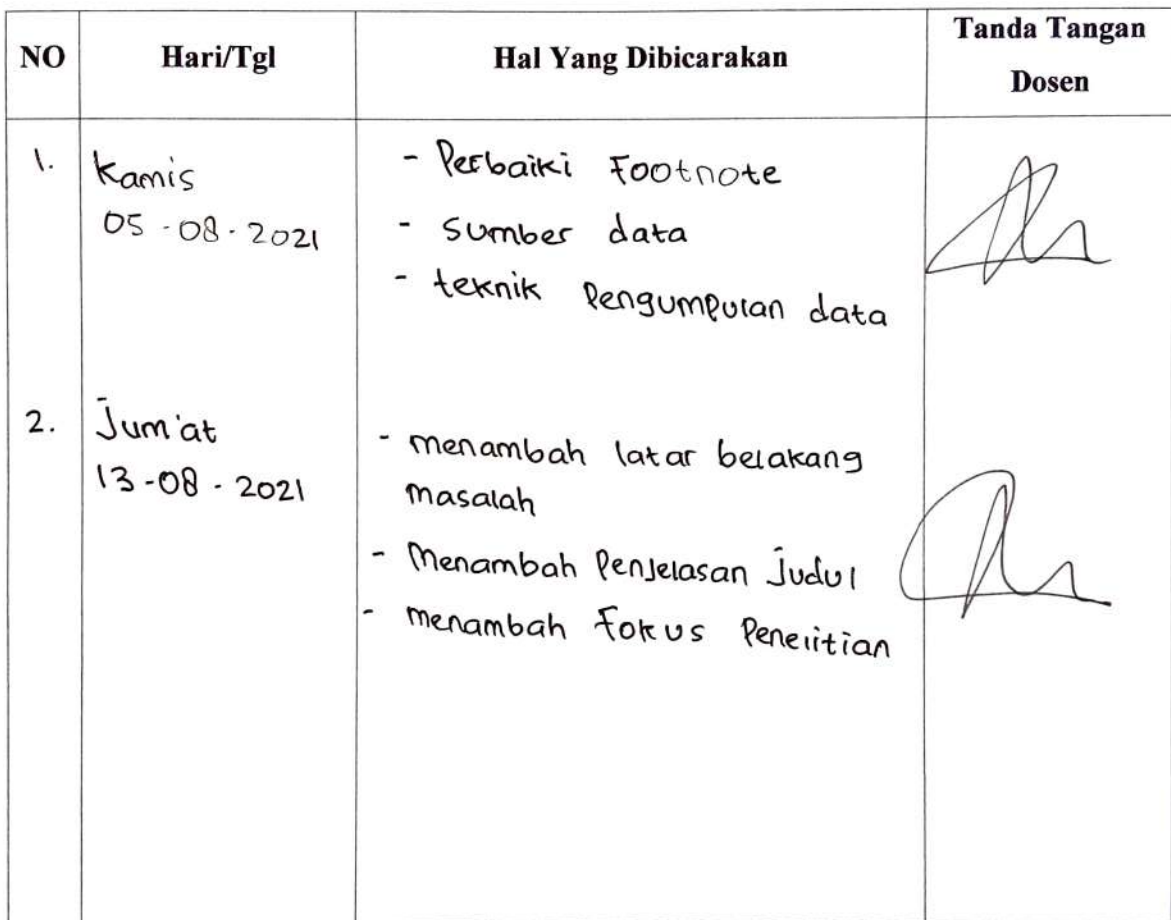 NO Hari/Tgl Hal Yang Dibicarakan Tanda Tangan
Dosen
1. Kamis - Perbaiki Footnote
05-08-2021 - Sumber data
- teknik Pengumpulan data
2. Jum'at - menambah latar belakang
13-08-2021 masalah
- Menambah Penjelasan Judul
- menambah Fokus Penelitian